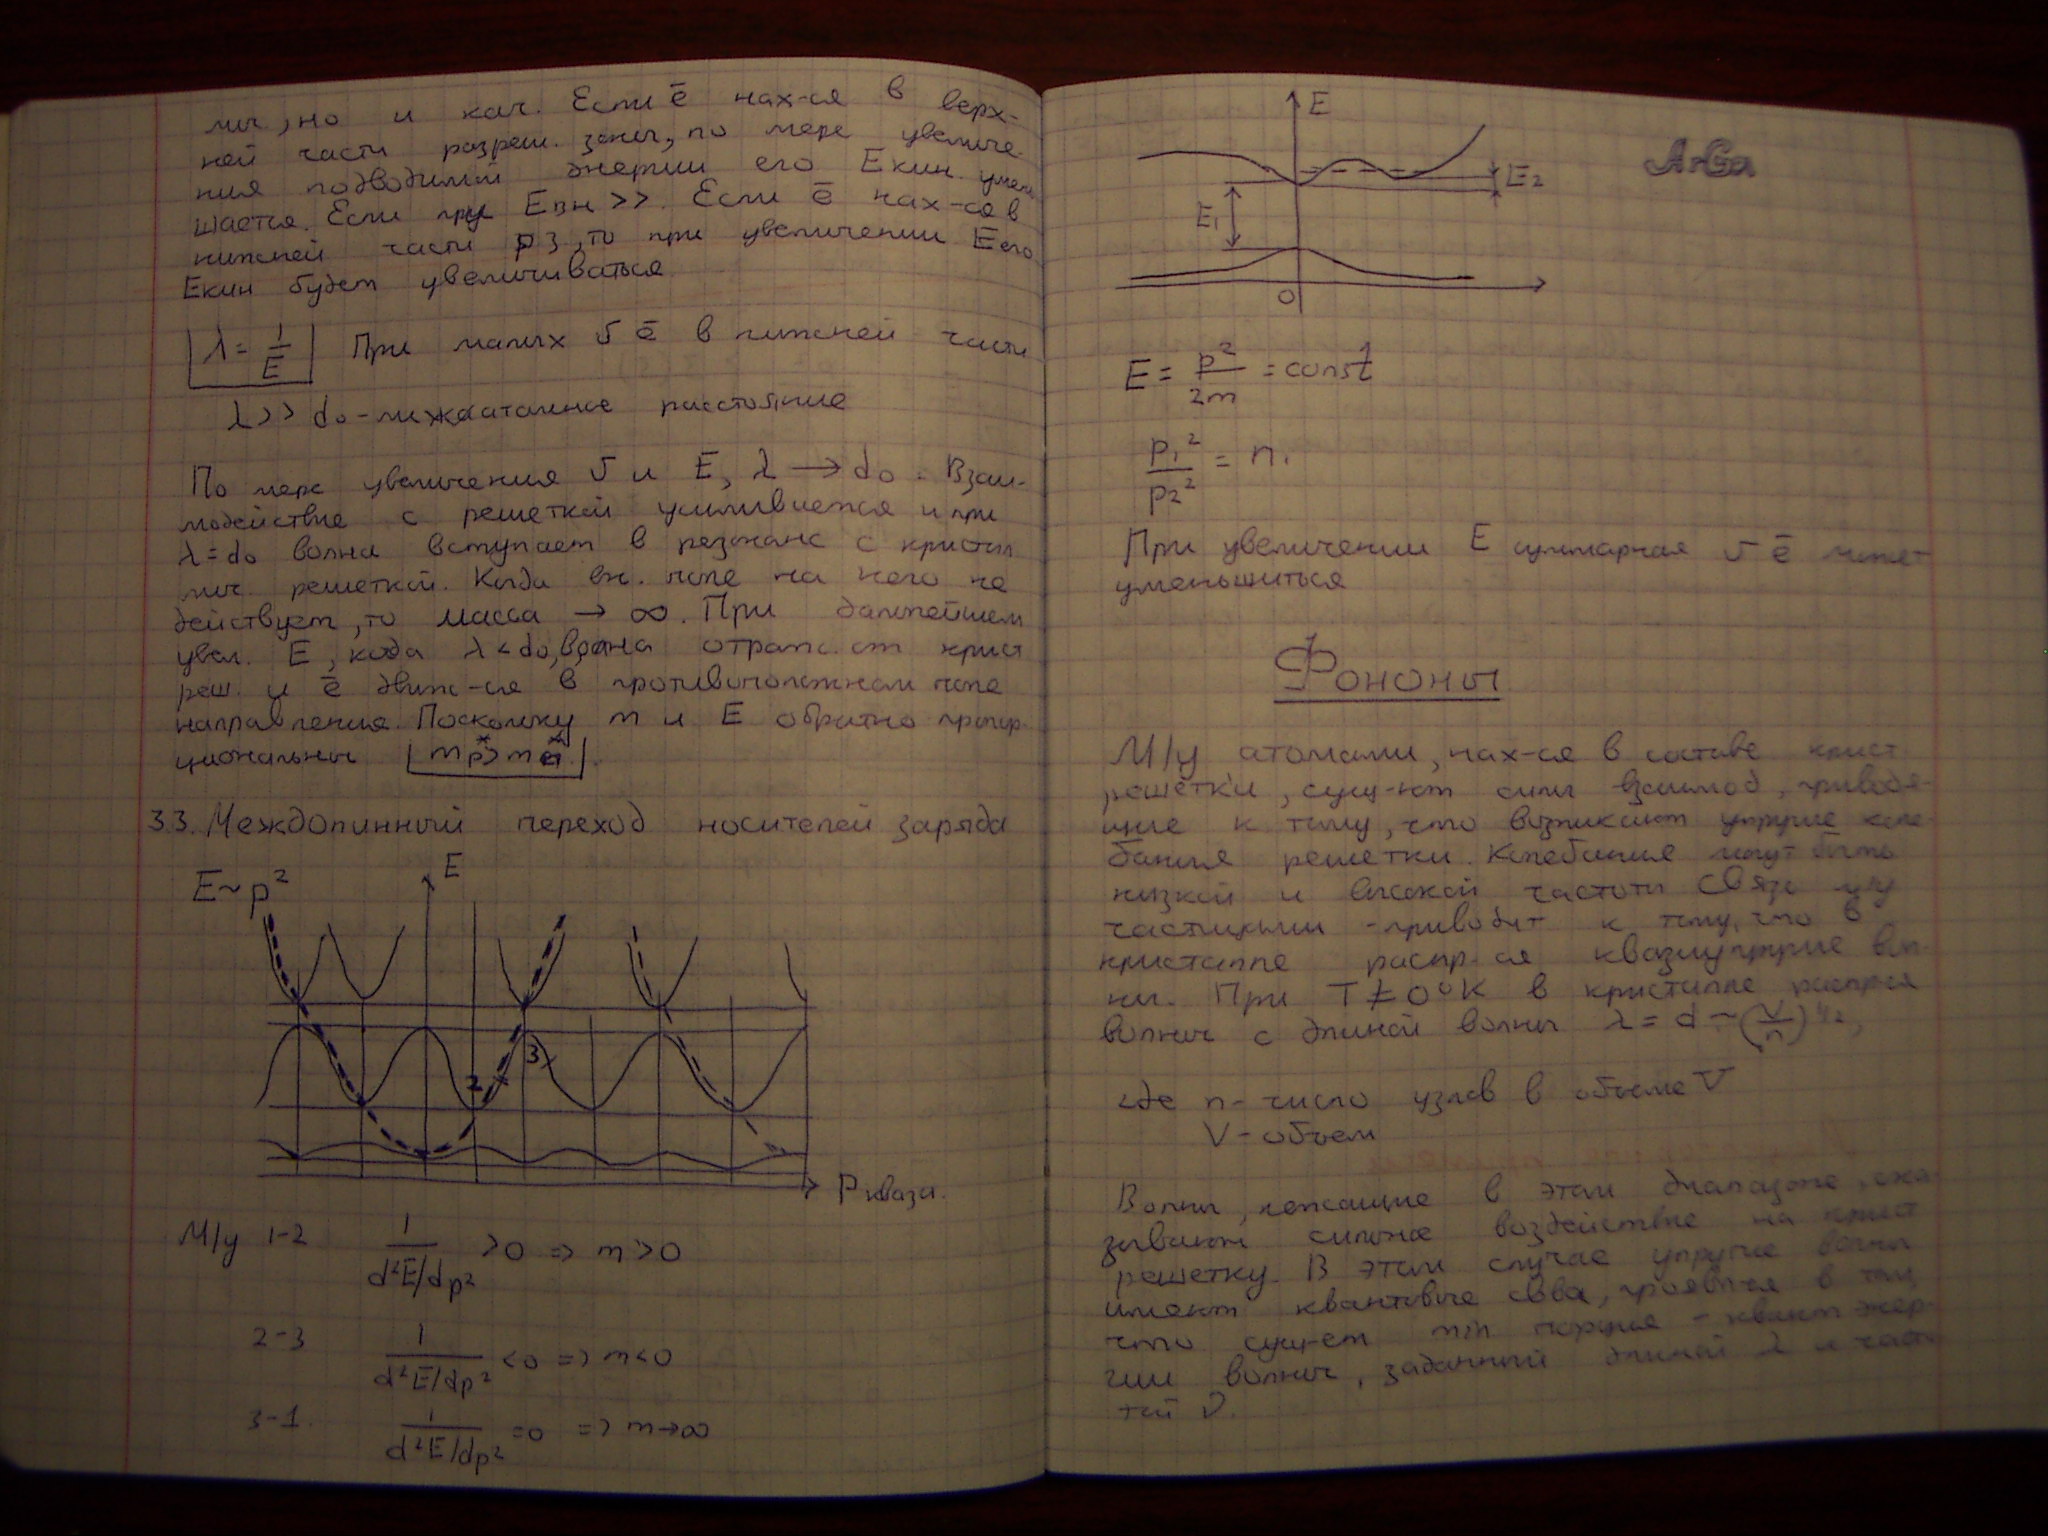 лич., но и кач. Если ē нах-ся в верх-
ней части разреш. зоны, по мере увеличе-
ния подводимой энергии его Eкин умень
шается. Если при Eвн >>. Если ē нах-ся в
нижней части РЗ, то при увеличении E его
Eкин будет увеличиваться.
λ = 1/E При малых v ē в нижней части
λ >> d₀ - межатомное расстояние
По мере увеличения v и E, λ → d₀. Взаи-
модействие с решеткой усиливается и при
λ = d₀ волна вступает в резонанс с кристал
лич. решеткой. Когда вн. поле на него не
действует, то масса → ∞. При дальнейшем
увел. E, когда λ < d₀, волна отраж. от крист
реш. и ē движ-ся в противоположном поле
направлении. Поскольку m и E обратно пропор-
циональны mp* > mē*.
3.3. Междолинный переход носителей заряда
E ~ p²
E
2
3
P квази.
М/у 1-2 1/(d²E/dp²) > 0 => m > 0
2-3 1/(d²E/dp²) < 0 => m < 0
3-1. 1/(d²E/dp²) = 0 => m → ∞
E
ArGa
E₂
E₁
0
E = p²/2m = const
p₁²/p₂² = n.
При увеличении E суммарная v ē может
уменьшиться
Фононы
М/у атомами, нах-ся в составе крист
решетки, сущ-ют силы взаимод, приводя-
щие к тому, что возникают упругие коле-
бания решетки. Колебания могут быть
низкой и высокой частоты Связь м/у
частицами - приводит к тому, что в
кристалле распр-ся квазиупругие вол-
ны. При T ≠ 0°K в кристалле распр-ся
волны с длиной волны λ = d ~ (V/n)^1/2,
где n - число узлов в объеме V
V - объем
Волны, лежащие в этом диапазоне, ока-
зывают сильное воздействие на крист
решетку. В этом случае упругие волны
имеют квантовые св-ва, проявл-ся в том,
что сущ-ет min порция - квант энер-
гии волны, заданный длиной λ и часто-
той ν.